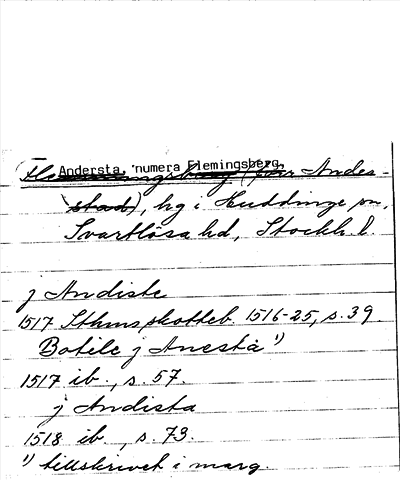 Andersta, numera Flemingsberg
Flemingsberg (förr Andes-
stad), hg i Huddinge sn,
Svartlösa hd, Stockh. l.
j Andiste
1517 Sthms skotteb. 1516-25, s. 39.
Botile j Anesta ¹)
1517 ib., s. 57.
j Andista
1518 ib., s. 73.
¹) tillskrivet i marg.